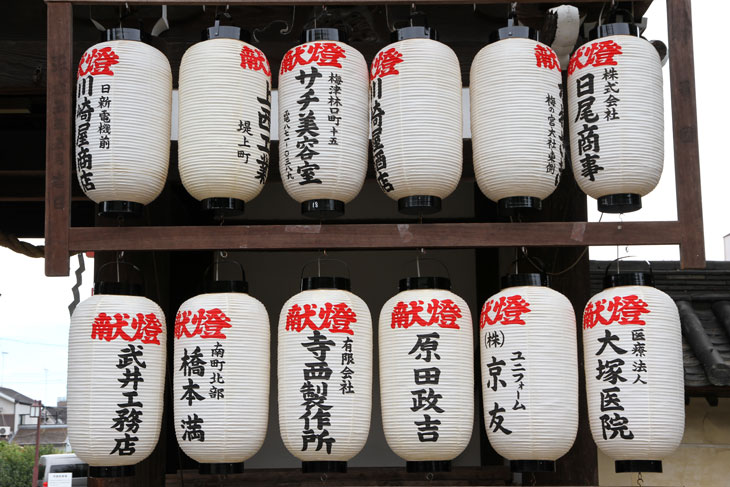 献燈
日新電機前
川崎屋商店
献燈
堤上町
上西工業
献燈
梅津林口町十五
サチ美容室
電八七一〇三八九
献燈
川崎屋酒店
献燈
梅の宮大社東側
献燈
株式会社
日尾商事
献燈
武井工務店
献燈
南町北部
橋本満
献燈
有限会社
寺西製作所
献燈
原田政吉
献燈
ユニフォーム
(株)京友
献燈
医療法人
大塚医院